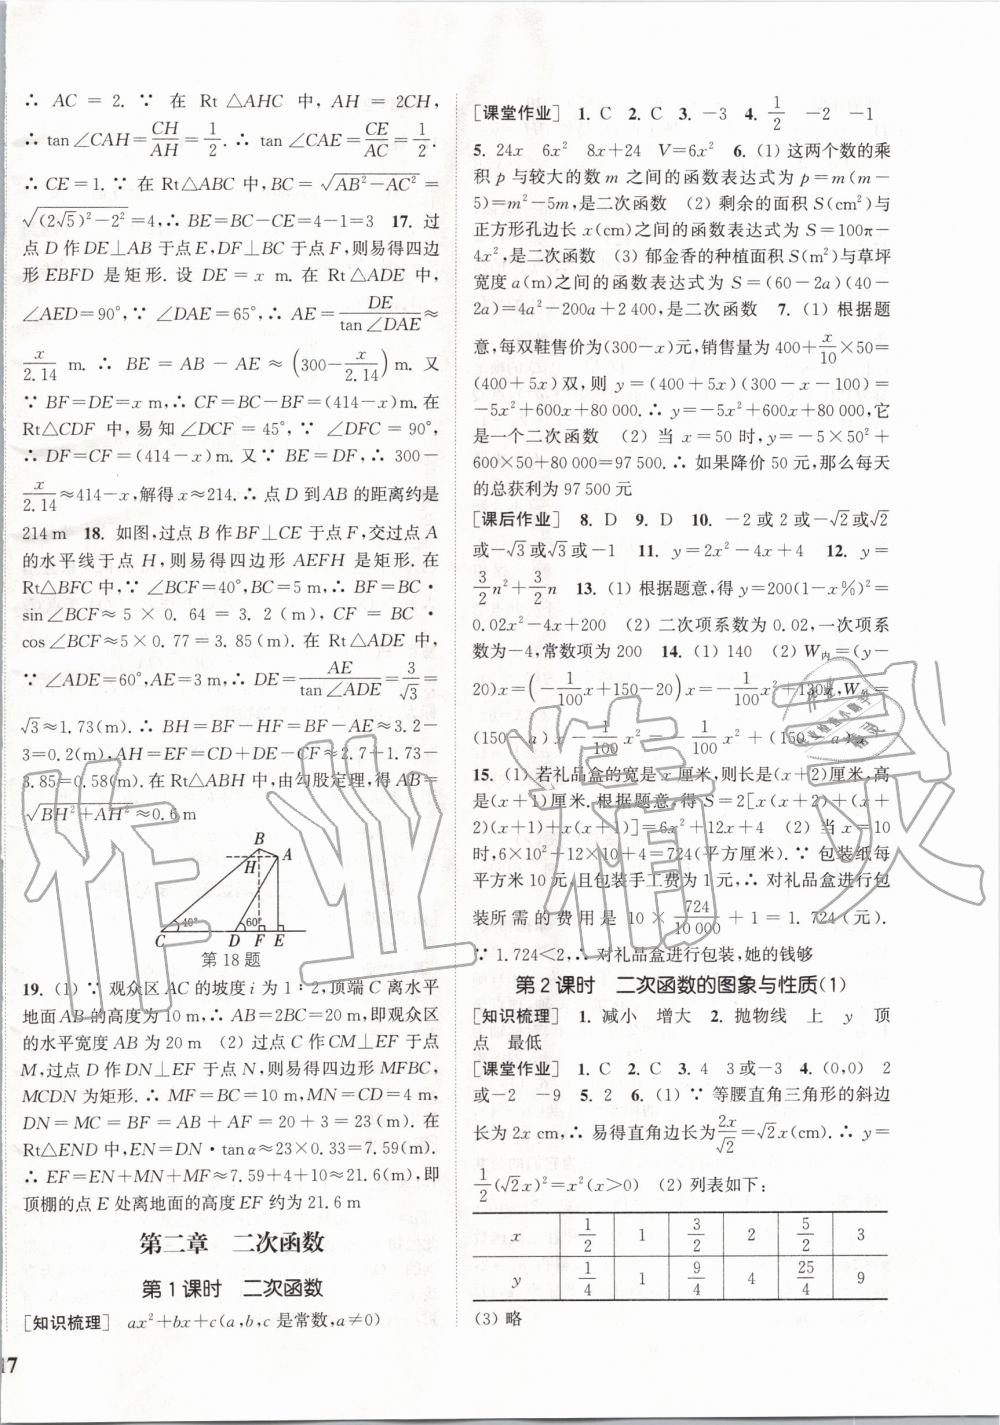 ∴ AC = 2. ∵ 在 Rt△AHC 中, AH = 2CH,
∴ tan∠CAH=CH/AH=1/2. ∴ tan∠CAE=CE/AC=1/2.
∴ CE=1. ∵ 在 Rt△ABC 中, BC=√(AB²−AC²)=
√((2√5)²−2²)=4, ∴ BE=BC−CE=4−1=3 17. 过
点 D 作 DE⊥AB 于点 E, DF⊥BC 于点 F, 则易得四边
形 EBFD 是矩形. 设 DE = x m. 在 Rt△ADE 中,
∠AED=90°, ∵ ∠DAE=65°, ∴ AE=DE/tan∠DAE≈
x/2.14 m. ∴ BE = AB − AE ≈ (300−x/2.14) m. 又
∵ BF=DE=x m, ∴ CF=BC−BF=(414−x)m. 在
Rt△CDF 中, 易知∠DCF = 45°, ∵ ∠DFC = 90°,
∴ DF=CF=(414−x)m. 又∵ BE=DF, ∴ 300−
x/2.14≈414−x, 解得x≈214. ∴ 点 D 到AB 的距离约是
214 m 18. 如图, 过点 B 作BF⊥CE 于点 F, 交过点 A
的水平线于点 H, 则易得四边形 AEFH 是矩形. 在
Rt△BFC 中, ∵ ∠BCF=40°, BC=5 m, ∴ BF=BC·
sin∠BCF≈ 5 × 0. 64 = 3. 2 (m), CF = BC ·
cos∠BCF≈5×0. 77=3. 85(m). 在 Rt△ADE 中,
∵ ∠ADE=60°, AE=3 m, ∴ DE=AE/tan∠ADE=3/√3=
√3≈1. 73(m). ∴ BH=BF−HF=BF−AE≈3. 2−
3=0. 2(m), AH=EF=CD+DE−CF≈2. 7+1. 73−
3. 85=0. 58(m). 在 Rt△ABH 中, 由勾股定理, 得 AB=
√(BH²+AH²)≈0. 6 m
B
H A
40° 60°
C D F E
第 18 题
19. (1) ∵ 观众区 AC 的坡度 i 为 1∶2, 顶端 C 离水平
地面AB 的高度为 10 m, ∴ AB=2BC=20 m, 即观众区
的水平宽度 AB 为 20 m (2) 过点 C 作 CM⊥EF 于点
M, 过点 D 作 DN⊥EF 于点 N, 则易得四边形 MFBC,
MCDN 为矩形. ∴ MF=BC=10 m, MN=CD=4 m,
DN = MC = BF = AB + AF = 20 + 3 = 23(m). 在
Rt△END 中, EN=DN·tanα≈23×0.33=7.59(m).
∴ EF=EN+MN+MF≈7.59+4+10≈21.6(m), 即
顶棚的点 E 处离地面的高度 EF 约为 21.6 m
第二章 二次函数
第 1 课时 二次函数
[知识梳理] ax²+bx+c(a,b,c 是常数,a≠0)
17
[课堂作业] 1. C 2. C 3. −3 4. 1/2 −2 −1
5. 24x 6x² 8x+24 V=6x² 6. (1) 这两个数的乘
积 p 与较大的数 m 之间的函数表达式为 p=m(m−
5)=m²−5m, 是二次函数 (2) 剩余的面积 S(cm²)与
正方形孔边长 x(cm)之间的函数表达式为 S=100π−
4x², 是二次函数 (3) 郁金香的种植面积 S(m²)与草坪
宽度 a(m)之间的函数表达式为 S=(60−2a)(40−
2a)=4a²−200a+2 400, 是二次函数 7. (1) 根据题
意, 每双鞋售价为(300−x)元, 销售量为 400+x/10×50=
(400+5x)双, 则 y=(400+5x)(300−x−100)=
−5x²+600x+80 000. ∴ y=−5x²+600x+80 000, 它
是一个二次函数 (2) 当 x=50 时, y=−5×50²+
600×50+80 000=97 500. ∴ 如果降价 50 元, 那么每天
的总获利为 97 500元
[课后作业] 8. D 9. D 10. −2 或 2 或−√2或√2
或−√3或√3或−1 11. y=2x²−4x+4 12. y=
3/2n²+3/2n 13. (1) 根据题意, 得 y=200(1−x%)²=
0.02x²−4x+200 (2) 二次项系数为 0.02, 一次项系
数为−4, 常数项为 200 14. (1) 140 (2) W内=(y−
20)x=(−1/100x+150−20)x=−1/100x²+130x, W
(150−a)x−1/100x²=−1/100x²+(150−a)x
15. (1) 若礼品盒的宽是 x 厘米, 则长是(x+2)厘米, 高
是(x+1)厘米. 根据题意, 得 S=2[x(x+2)+(x+
2)(x+1)+x(x+1)]=6x²+12x+4 (2) 当 x=10
时, 6×10²+12×10+4=724(平方厘米). ∵ 包装纸每
平方米 10 元, 且包装手工费为 1 元, ∴ 对礼品盒进行包
装所需的费用是 10 × 724/10 000 + 1 = 1. 724(元).
∵ 1.724<2, ∴ 对礼品盒进行包装, 她的钱够
第 2 课时 二次函数的图象与性质(1)
[知识梳理] 1. 减小 增大 2. 抛物线 上 y 顶
点 最低
[课堂作业] 1. C 2. C 3. 4 3或−3 4. (0,0) 2
或−2 −9 5. 2 6. (1) ∵ 等腰直角三角形的斜边
长为 2x cm, ∴ 易得直角边长为2x/√2=√2x(cm). ∴ y=
1/2(√2x)²=x²(x>0) (2) 列表如下:
x 1/2 1 3/2 2 5/2 3
y 1/4 1 9/4 4 25/4 9
(3) 略
作业精灵